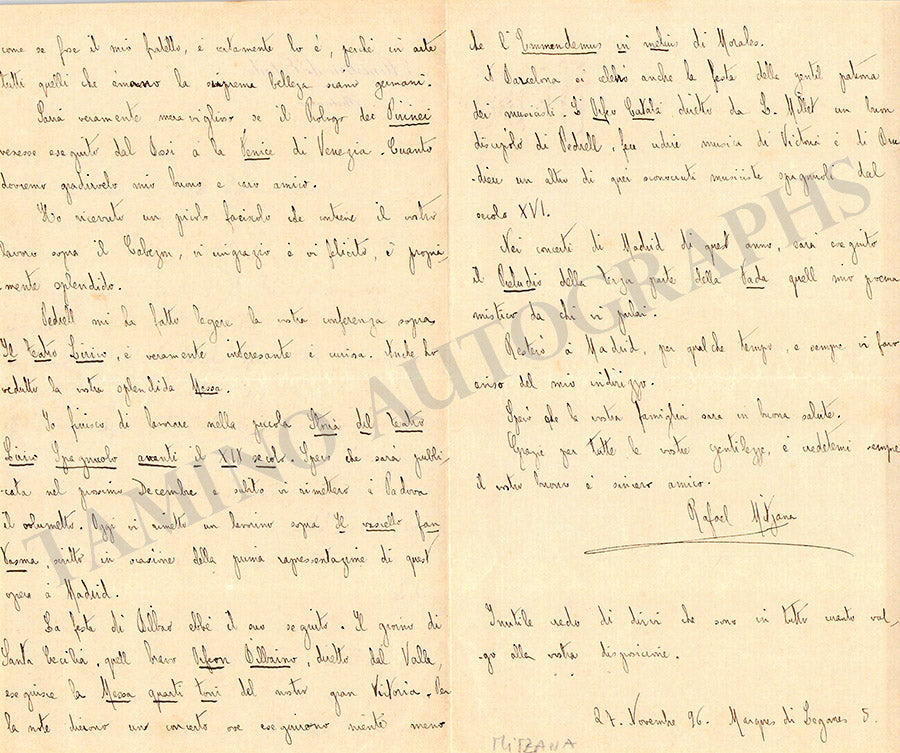 come se fose il mio fratello, é certamente lo é, perché in arte
tutti quelli che ámano la suprema bellezza siano germani.
Sará veramente meraviglioso se il Prologo dei Pirinei
venesse eseguito dal Bossi á la Fenice di Venezia. Quanto
dovremo gradirvelo mio buono e caro amico.
Ho ricevuto un picolo fascicolo che contiene il vostro
lavoro sopra il Cabezon, vi ringrazio é vi felicito, é propria-
mente splendido.
Pedrell mi ha fatto legere la vostra conferenza sopra
Il teatro Lirico, é veramente interesante é curiosa. Anche ho
vedutto la vostra splendida Messa.
Io finisco di lavorare nella piccola Storia del teatro
Lirico Spagnuolo avanti il XIX secolo. Spero che sará publi-
cata nel prossimo Decembre e subito vi rimetteró á Padova
il volumetto. Oggi vi rimetto un lavorino sopra Il vascello fan-
tasma, scritto in ocasione della prima rapresentazione di quest'
opera á Madrid.
La festa di Bilbao ebbé il suo seguito. Il giorno di
Santa Cecilia, quell bravo Orfeon Bilbaino, diretto dal Valle,
eseguisce la Messa quarti toni del nostro gran Victoria. Per
la note diedono un concerto ove eseguirono niente meno
che l'Emmendemus in melius di Morales.
A Barcelona si celebró anche la festa della gentil patrona
dei musicisti. L'Orfeo Catalá diretto da L. Millet un buon
discipolo di Pedrell, fece udire musica di Victoria é di Bru-
dieu un altro di quei sconosciuti musiciste spagnuoli dal
secolo XVI.
Nei concerti di Madrid di quest anno, sará eseguito
il Preludio della terza parte della Fada quell mio poema
mistico da chi vi parlai.
Resteró á Madrid, per qualche tempo, e sempre vi faro
aviso del mio indirizzo.
Speró che la vostra famiglia sara in buona salute.
Grazie per tutte le vostre gentilezze, é credetemi sempre
il vostro buono é sincero amico.
Rafael Mitjana
Inutile credo di dirvi che sono in tutto cuanto val-
go alla vostra disposicione.
27. Novembre 96. Marques di Leganes 5.
MITZANA
TAMINO AUTOGRAPHS